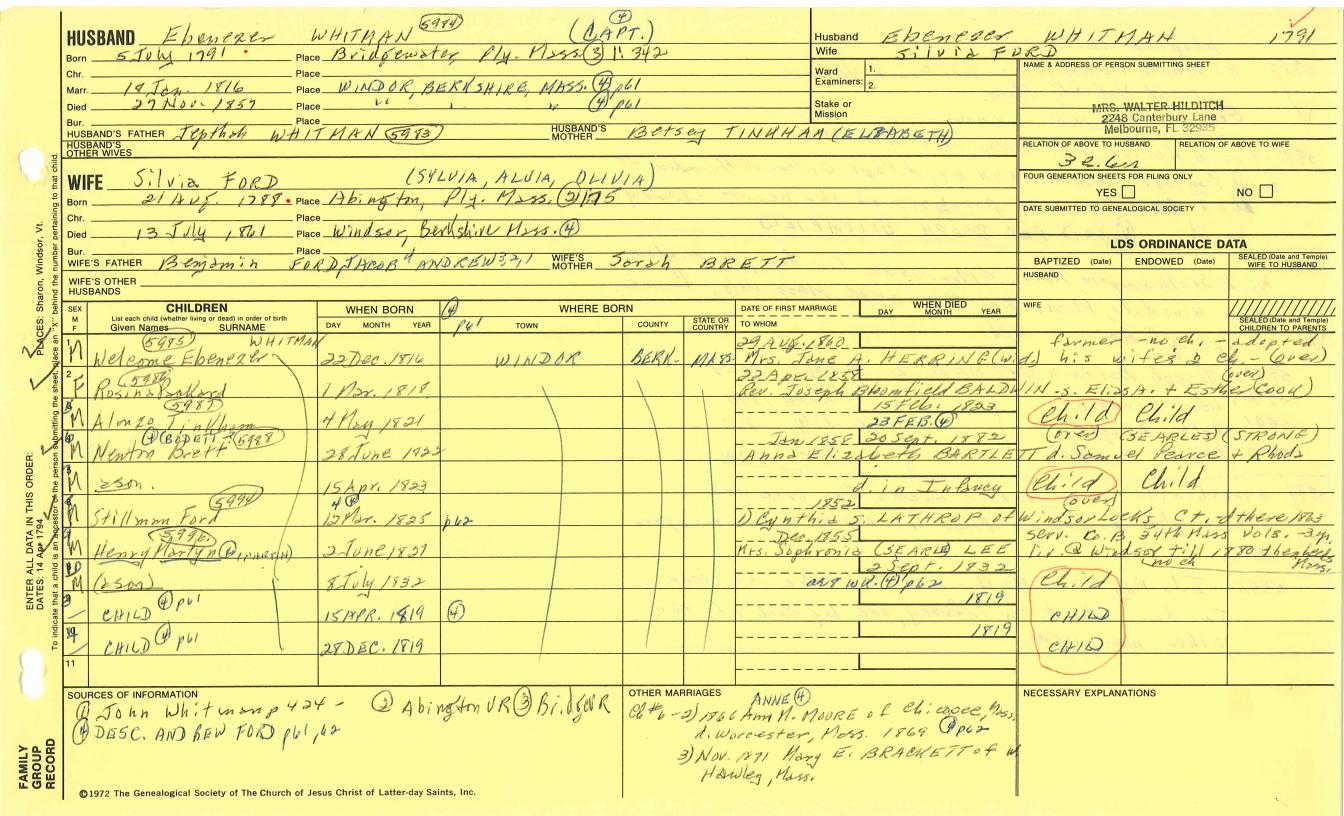 HUSBAND Ebenezer WHITMAN 5984 (CAPT.) ④
Born 5 July 1791 Place Bridgewater, Ply. Mass. ③ 1:342
Chr. Place
Marr. 18 Jan. 1816 Place WINDOR, BERKSHIRE, MASS. ④ p61
Died 27 Nov. 1857 Place " " " ④ p61
Bur. Place
HUSBAND'S FATHER Jepthah WHITMAN 5983 HUSBAND'S MOTHER Betsey TINKHAM (ELIZABETH)
HUSBAND'S OTHER WIVES
WIFE Silvia FORD (SYLVIA, ALVIA, OLIVIA)
Born 21 Aug. 1788 Place Abington, Ply. Mass. ② 1:75
Chr. Place
Died 13 July 1861 Place Windsor, Berkshire Mass. ④
Bur. Place
WIFE'S FATHER Benjamin FORD, JACOB 4 ANDREW 3, 2, 1 WIFE'S MOTHER Sarah BRETT
WIFE'S OTHER HUSBANDS
Husband Ebenezer WHITMAN 1791
Wife Silvia FORD
Ward Examiners: 1.
2.
Stake or Mission
NAME & ADDRESS OF PERSON SUBMITTING SHEET
MRS. WALTER HILDITCH
2248 Canterbury Lane
Melbourne, FL 32935
RELATION OF ABOVE TO HUSBAND RELATION OF ABOVE TO WIFE
FOUR GENERATION SHEETS FOR FILING ONLY
YES NO
DATE SUBMITTED TO GENEALOGICAL SOCIETY
LDS ORDINANCE DATA
BAPTIZED (Date) ENDOWED (Date) SEALED (Date and Temple) WIFE TO HUSBAND
HUSBAND
WIFE
SEALED (Date and Temple) CHILDREN TO PARENTS
SEX M F CHILDREN List each child (whether living or dead) in order of birth Given Names SURNAME
WHEN BORN DAY MONTH YEAR ④ p61 WHERE BORN TOWN COUNTY STATE OR COUNTRY
DATE OF FIRST MARRIAGE TO WHOM WHEN DIED DAY MONTH YEAR
1 M 5985 WHITMAN 29 AUG. 1860 farmer - no ch. - adopted
Welcome Ebenezer 22 Dec. 1816 WINDOR BERK- MASS- Mrs. Jane A. HERRING (wid) his wife's 2 ch - (over)
2 F 5986 22 Apr 1858 (over)
Rosina Ballard 1 Mar. 1818 Rev. Joseph Bloomfield BALDWIN - s. Eliz A. + Esther (Cook)
M 5987 15 Feb. 1823
Alonzo Tinkham 4 May 1821 23 FEB. ④ Child Child
M 5988 Jan 1858 20 Sept. 1882 (over) (SEARLES) (STRONG)
Newton Brett 28 June 1822 Anna Elizabeth BARTLETT d. Samuel Pearce + Rhoda
M son. 15 Apr. 1823 d. in Infancy Child Child
M 5994 4 ④ 1852 (over)
Stillman Ford 12 Mar. 1825 p62 1) Cynthia S. LATHROP of Windsor Locks, Ct. - d there 1863
M 5996 Dec. 1855 serv. Co. B, 34th Mass Vols. - 3 yr.
Henry Martyn 2 June 1827 Mrs. Sophronia (SEARLE) LEE liv. @ Windsor till 1880 then
no ch Mass.
10 M 2 Sept. 1832
(son) 8 July 1832 ④ p62 Child
CHILD ④ p61 15 APR. 1819 ④ 1819 CHILD
CHILD ④ p61 28 DEC. 1819 1819 CHILD
11
SOURCES OF INFORMATION
① John Whitman p 424 - ② Abington VR ③ Bridge VR
④ DESC. ANDREW FORD p61, 62
OTHER MARRIAGES
ANNE ④
Ch #6 - 2) 1866 Ann M. MOORE of Chicopee, Mass.
d. Worcester, Mass. 1869 ④ p62
3) Nov. 1871 Mary E. BRACKETT of W
Hawley, Mass.
NECESSARY EXPLANATIONS
©1972 The Genealogical Society of The Church of Jesus Christ of Latter-day Saints, Inc.
FAMILY GROUP RECORD
ENTER ALL DATA IN THIS ORDER:
DATES: 14 Apr 1794 PLACES: Sharon, Windsor, Vt.
To indicate that a child is an ancestor of the person submitting the sheet, place an "X" behind the number pertaining to that child.